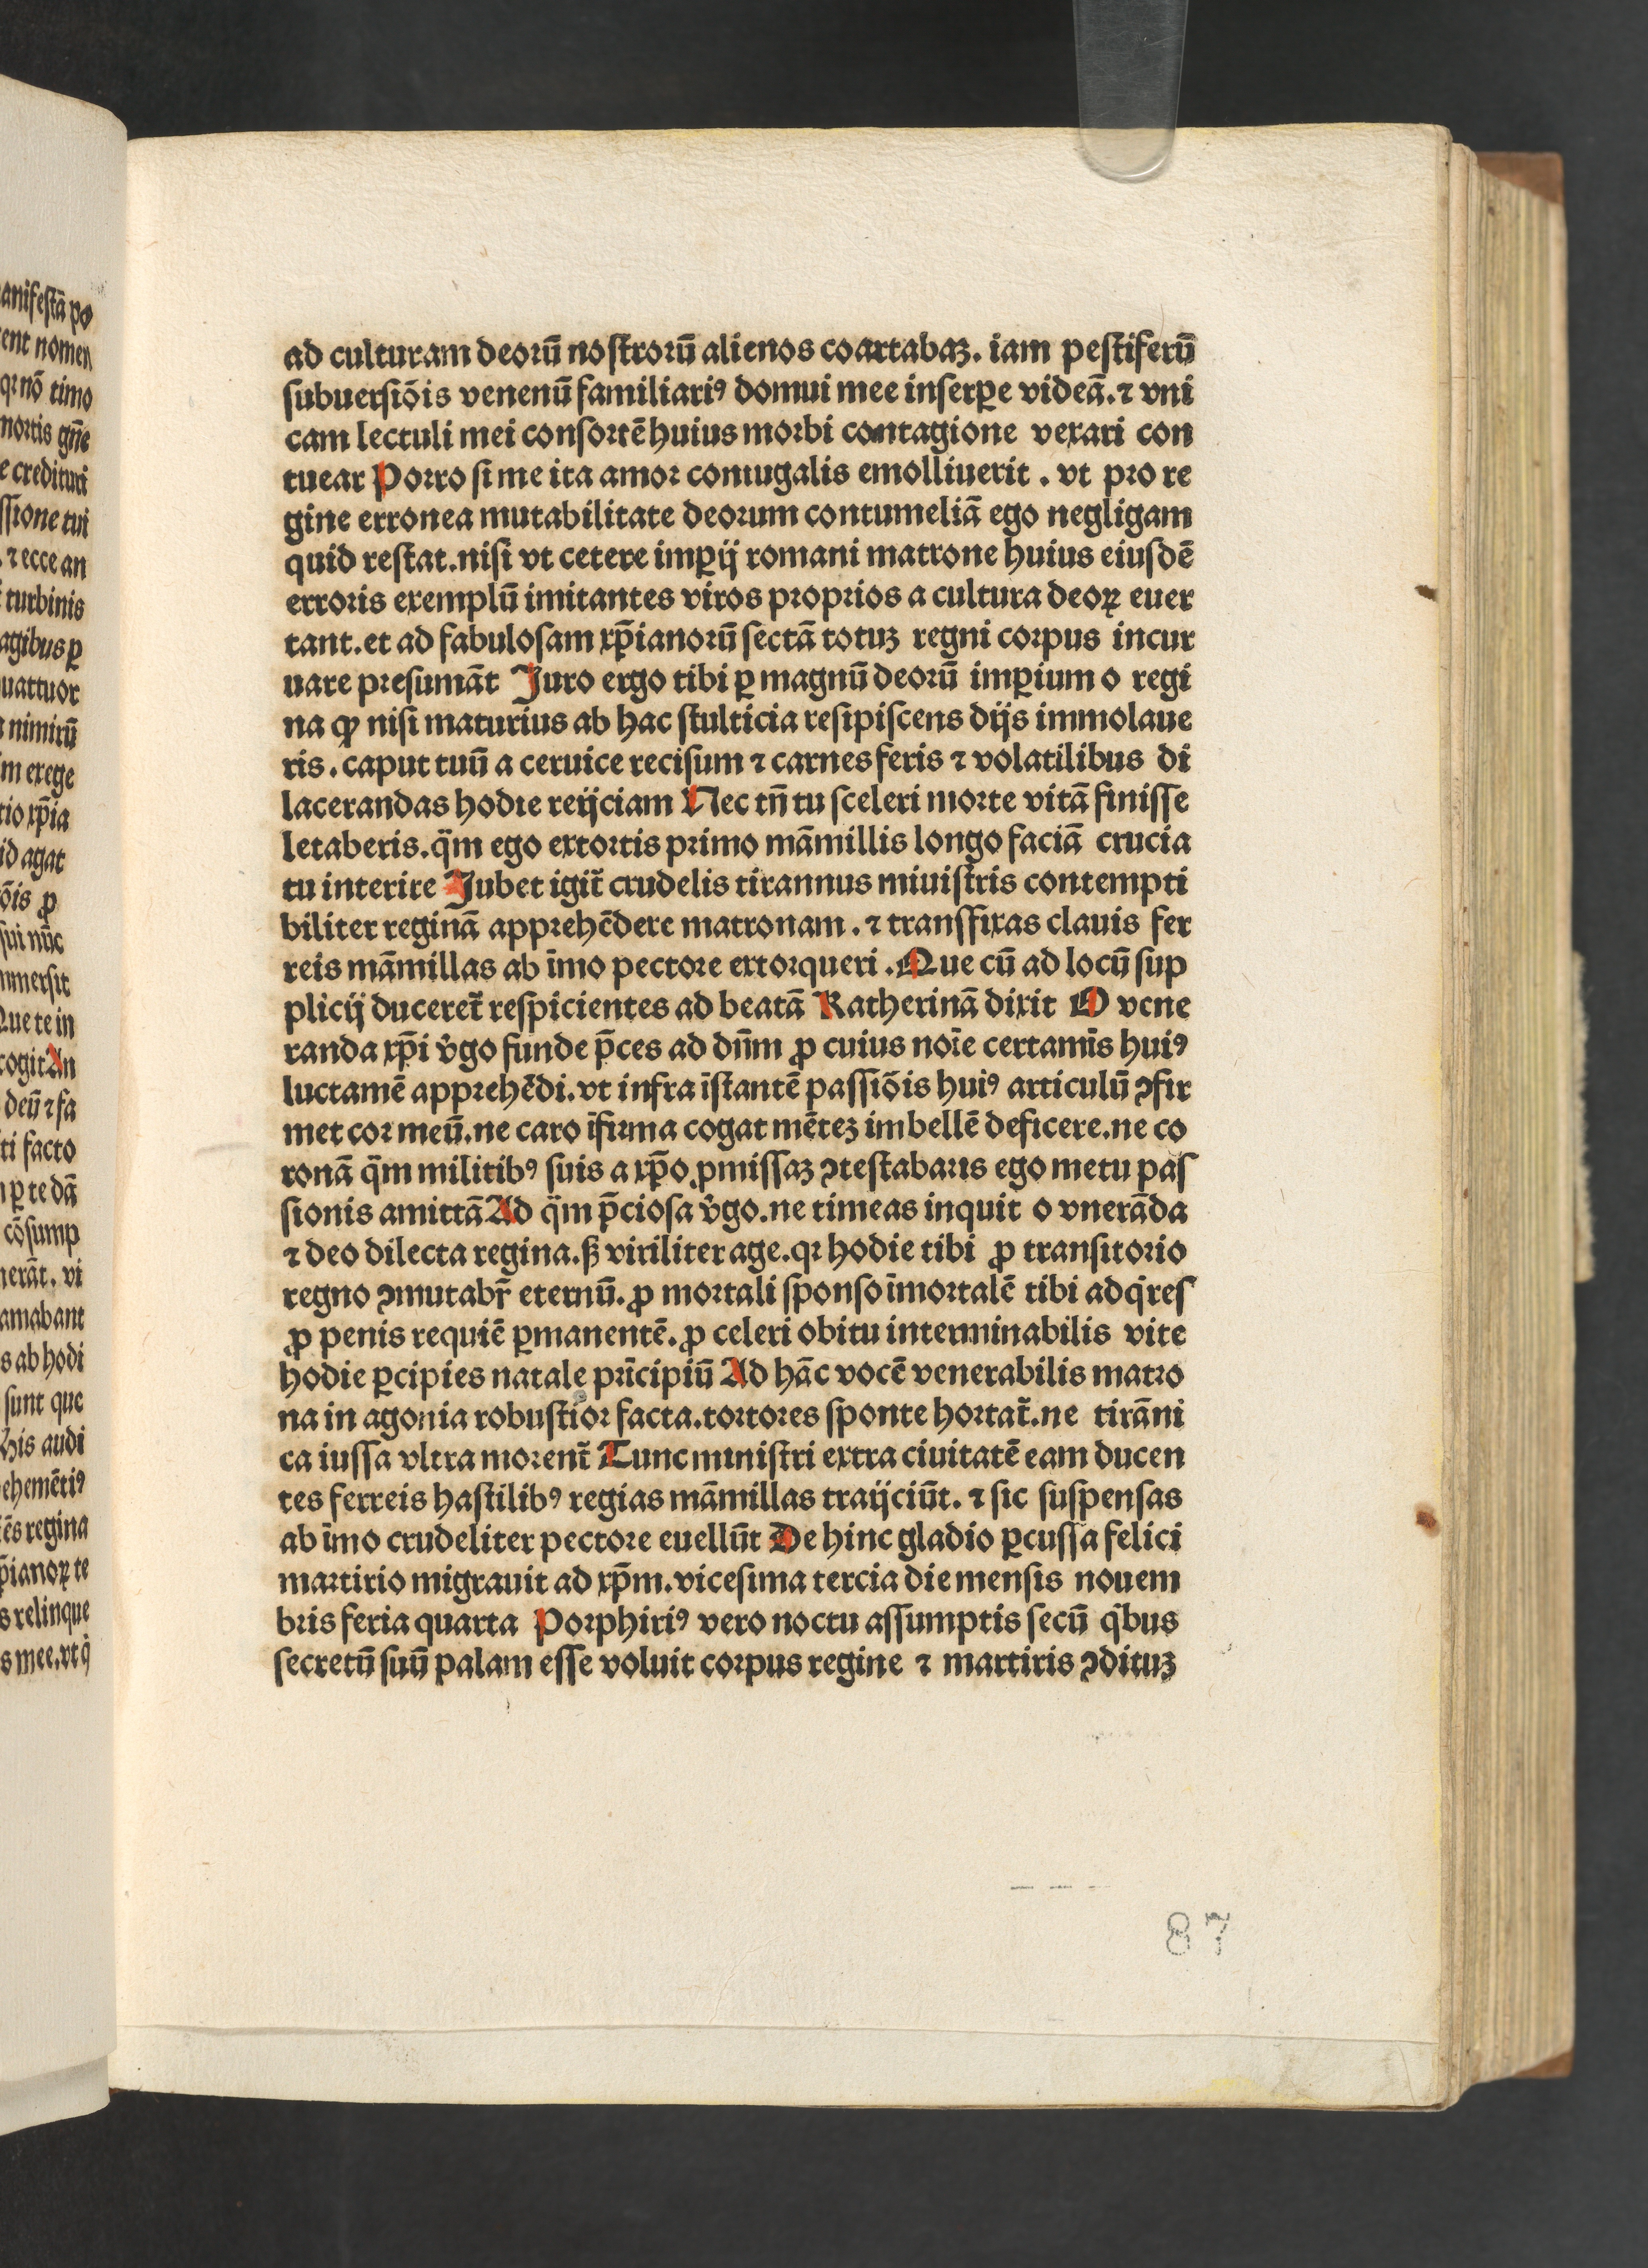 ad culturam deorū noſtrorū alienos coartabaꝫ. iam peſtiferū
ſubuerſiōis venenū familiariꝰ domui mee inſerꝑe videā. ⁊ vni
cam lectuli mei conſortē huius morbi contagione vexari con
tuear Porro ſi me ita amor coniugalis emolliuerit . vt pro re
gine erronea mutabilitate deorum contumeliā ego negligam
quid reſtat. niſi vt cetere imꝑij romani matrone huius eiuſdē
erroris exemplū imitantes viros proprios a cultura deoꝝ euer
tant. et ad fabuloſam xp̄ianorū ſectā totuꝫ regni corpus incur
uare preſumāt Juro ergo tibi ꝑ magnū deorū imꝑium o regi
na ꝙ niſi maturius ab hac ſtulticia reſipiſcens dijs immolaue
ris. caput tuū a ceruice reciſum ⁊ carnes feris ⁊ volatilibus di
lacerandas hodie reijciam Nec tn̄ tu ſceleri morte vitā finiſſe
letaberis. q̈m ego extortis primo māmillis longo faciā crucia
tu interire Jubet igit̄ crudelis tirannus miuiſtris contempti
biliter reginā apprehēdere matronam. ⁊ tranſfixas clauis fer
reis māmillas ab īmo pectore extorqueri. Que cū ad locū ſup
plicij duceret̄ reſpicientes ad beatā Katherinā dixit O vene
randa xp̄i v̓go funde p̄ces ad dn̄m ꝓ cuius noīe certamīs huiꝰ
luctamē apprehēdi. vt infra īſtantē paſſiōis huiꝰ articulū ꝯfir
met cor meū. ne caro īfirma cogat mēteꝫ imbellē deficere. ne co
ronā q̈m militibꝰ ſuis a xp̄o ꝓmiſſaꝫ ꝯteſtabaris ego metu paſ
ſionis amittā Ad q̈m p̄cioſa v̓go. ne timeas inquit o vnerāda
⁊ deo dilecta regina. ẜ viriliter age. qꝛ hodie tibi ꝓ tranſitorio
regno ꝯmutabr̄ eternū. ꝓ mortali ſponſo īmortalē tibi adq̇reſ
ꝓ penis requiē ꝑmanentē. ꝓ celeri obitu interminabilis vite
hodie ꝑcipies natale prīcipiū Ad hāc vocē venerabilis matro
na in agonia robuſtior facta. tortores ſponte hortat̄. ne tirāni
ca iuſſa vltra morent̄ Tunc miniſtri extra ciuitatē eam ducen
tes ferreis haſtilibꝰ regias māmillas traijciūt. ⁊ ſic ſuſpenſas
ab īmo crudeliter pectore euellūt De hinc gladio ꝑcuſſa felici
martirio migrauit ad xp̄m. viceſima tercia die menſis nouem
bris feria quarta Porphiriꝰ vero noctu aſſumptis ſecū q̇bus
ſecretū ſuū palam eſſe voluit corpus regine ⁊ martiris ꝯdituꝫ
87